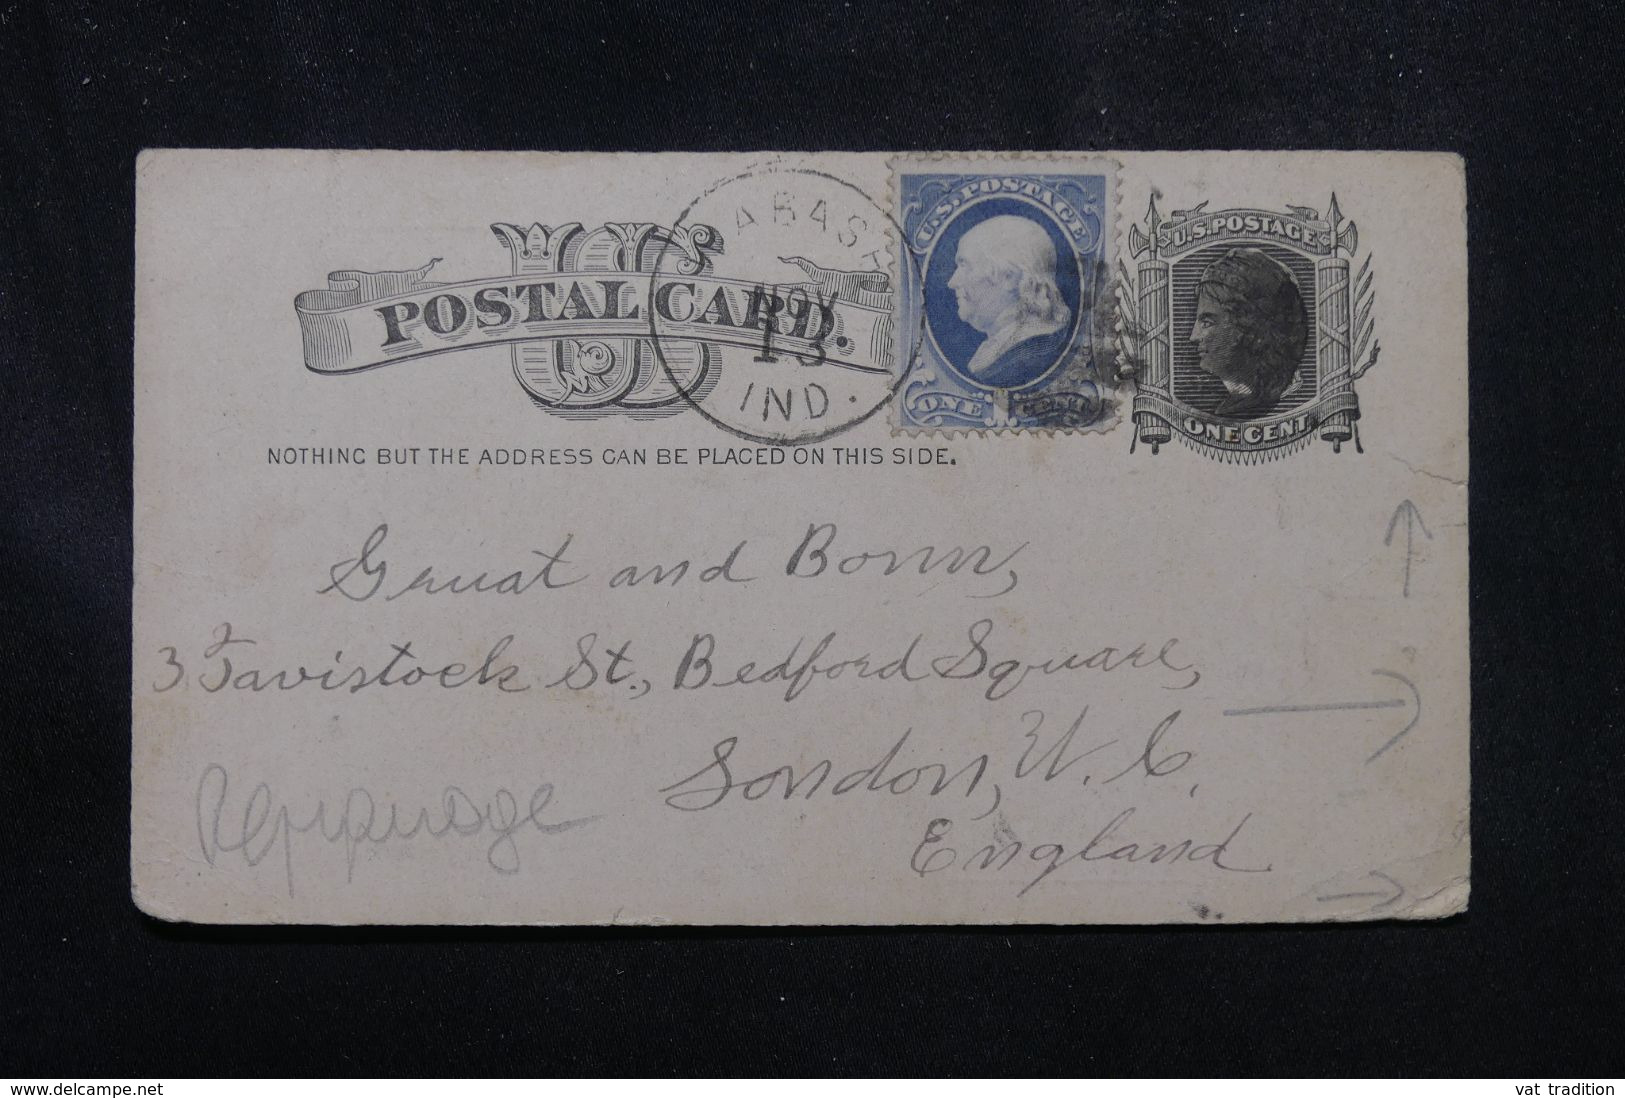 US
POSTAL CARD.
WABASH
NOV
13
IND.
U.S. POSTAGE
ONE 1 CENT
U.S. POSTAGE
ONE CENT
NOTHING BUT THE ADDRESS CAN BE PLACED ON THIS SIDE.
and
3 Tavistock St., Bedford Square,
London, W. C.
England
www.delcampe.net
vat tradition